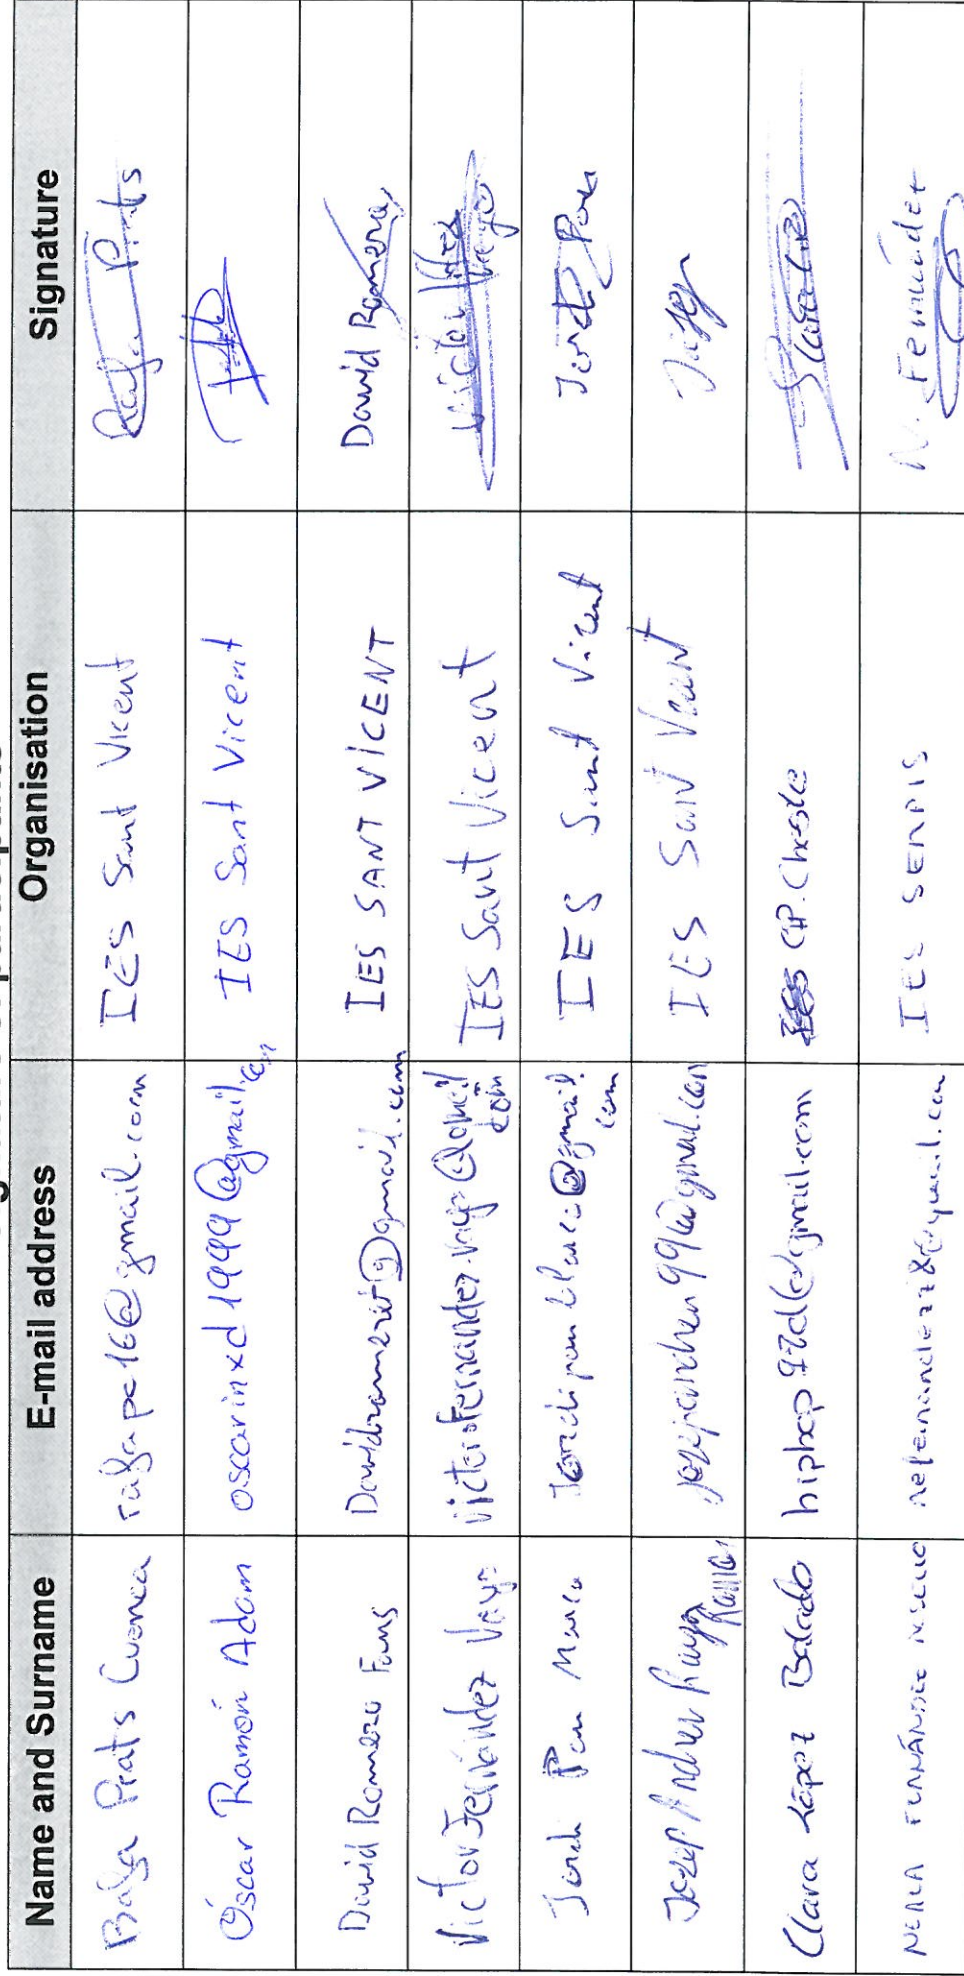 Name and Surname E-mail address Organisation Signature
Rafa Prats Cuenca rafapc16@gmail.com IES Sant Vicent Rafa Prats
Óscar Ramón Adam oscarinxd1999@gmail.com IES Sant Vicent
David Romero Fons Davidromerit@gmail.com IES SANT VICENT David Romero
Victor Fernández Vayo victorofernandez.vayo@gmail.com IES Sant Vicent Victor Vayo
Jordi Pon Marco @gmail.com IES Sant Vicent Jordi Pon
Jozep Andreu 99@gmail.com IES Sant Vicent Jozep
Clara López Balado hiphop97cl@gmail.com CIP. Cheste Clara
NEREA FERNÁNDEZ @gmail.com IES SERPIS N. Fernández